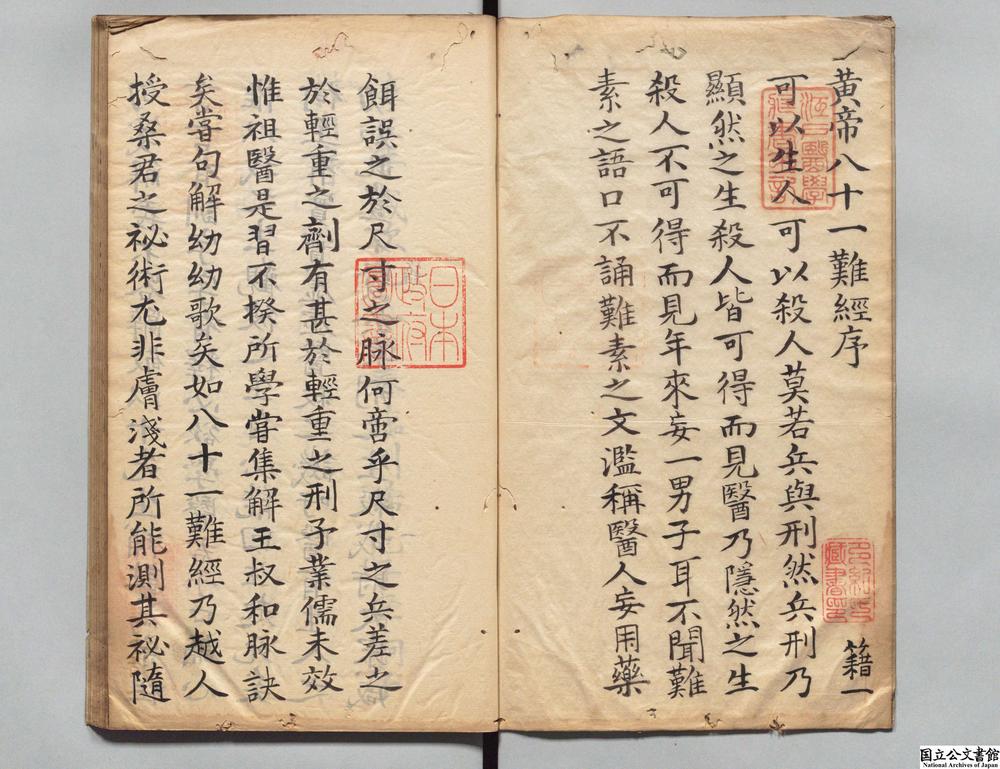 黄帝八十一難經序
籍一
可以生人可以殺人莫若兵與刑然兵刑乃
顯然之生殺人皆可得而見醫乃隱然之生
殺人不可得而見年來妄一男子耳不聞難
素之語口不誦難素之文濫稱醫人妄用藥
餌誤之於尺寸之脉何啻乎尺寸之兵差之
於輕重之劑有甚於輕重之刑予業儒未效
惟祖醫是習不揆所學甞集解王叔和脉訣
矣嘗句解幼幼歌矣如八十一難經乃越人
授桑君之祕術尤非膚淺者所能測其祕隨
江戸醫學
藏書之記
日本
政府
圖書
國立公文書館
National Archives of Japan